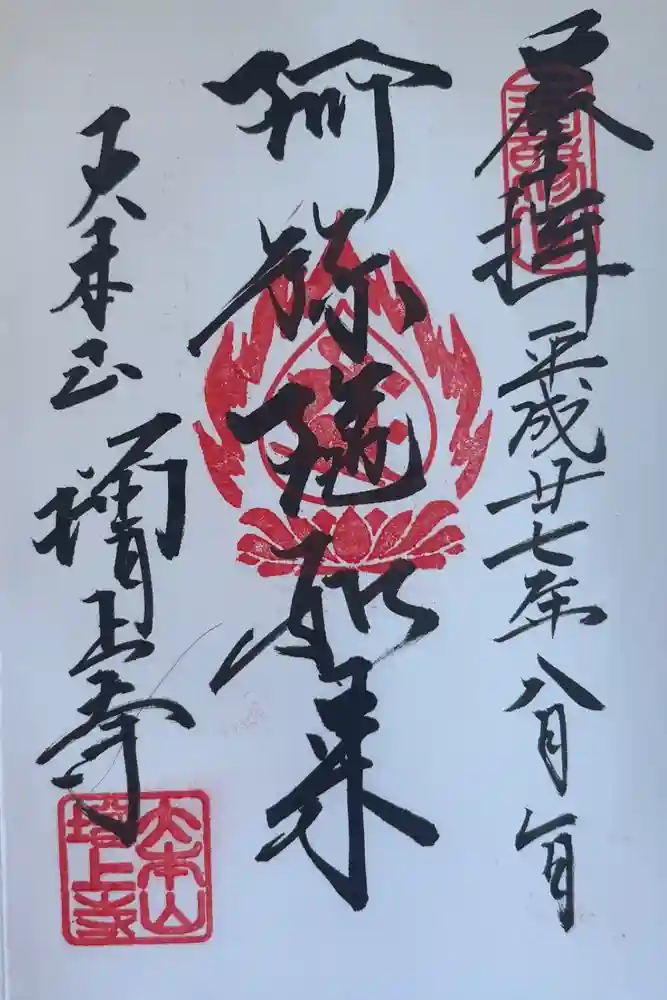 奉拝 平成廿七年八月
阿弥陀如来
大本山 増上寺
大本山
増上寺